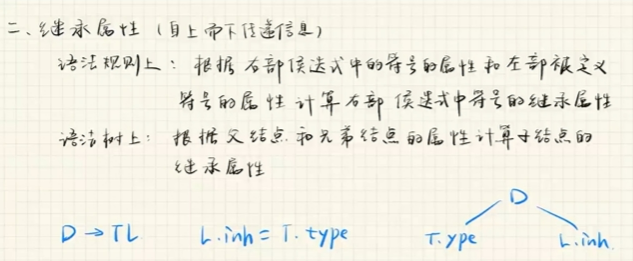 二、继承属性（自上而下传递信息）
语法规则上：根据右部侯选式中的符号的属性和左部被定义
符号的属性计算右部侯选式中符号的继承属性
语法树上：根据父结点和兄弟结点的属性计算子结点的
继承属性
D
D → TL L.inh = T.type T.ype L.inh